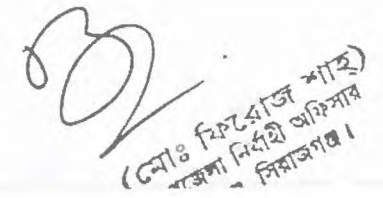 (মোঃ ফিরোজ শাহ)
উপজেলা নির্বাহী অফিসার
সিরাজগঞ্জ।